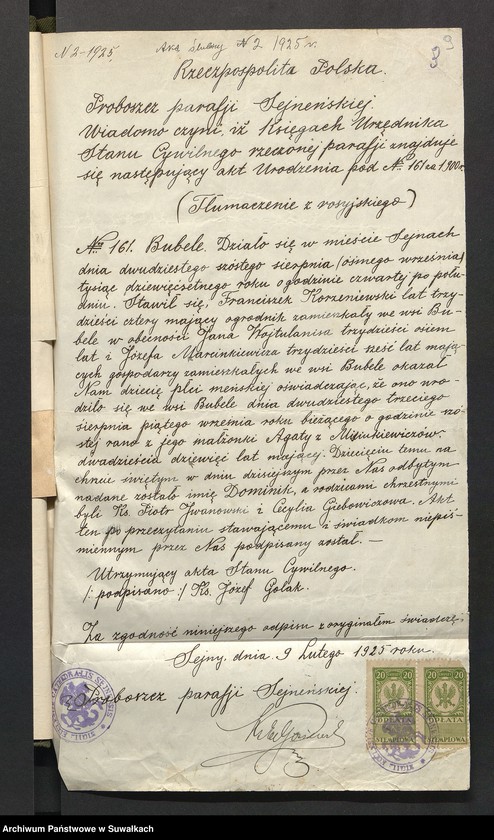 N 2-1925
Akt ślubny N 2 1925 r.
9
Rzeczpospolita Polska.
Proboszcz parafji Sejneńskiej.
Wiadomo czyni, iż Księgach Urzędnika
Stanu Cywilnego rzeczonej parafji znajduje
się następujący akt Urodzenia pod № 161 za 1900 r.
(Tłumaczenie z rosyjskiego)
№ 161. Bubele. Działo się w mieście Sejnach
dnia dwudziestego szóstego sierpnia /ósmego września/
tysiąc dziewięćsetnego roku o godzinie czwartej po połu-
dniu. Stawił się, Franciszek Korzeniewski lat trzy-
dzieści cztery mający ogrodnik zamieszkały we wsi Bu-
bele w obecności Jana Wojtulanisa trzydzieści osiem
lat i Józefa Marcinkiewicza trzydzieści sześć lat mają-
cych gospodarzy zamieszkałych we wsi Bubele okazał
Nam dziecię płci męńskiej oświadczając, że ono uro-
dziło się we wsi Bubele dnia dwudziestego trzeciego
sierpnia piątego września roku bieżącego o godzinie szó-
stej rano z jego małżonki Agaty z
dwadzieścia dziewięć lat mającej. Dziecięciu temu na
chrzcie świętym w dniu dzisiejszym przez Nas odbytym
nadane zostało imię Dominik, a rodzicami chrzestnymi
byli Ks. Piotr Iwanowski i Cecylia Giebowiczowa. Akt
ten po przeczytaniu stawającemu i świadkom niepiś-
miennym przez Nas podpisany został. —
Utrzymujący akta Stanu Cywilnego.
/: podpisano :/ Ks. Józef Golak.
Za zgodność niniejszego odpisu z oryginałem świadczę
Sejny, dnia 9 Lutego 1925 roku.
Proboszcz parafji Sejneńskiej.
20 20 20 20
OPŁATA OPŁATA
STEMPLOWA STEMPLOWA
Archiwum Państwowe w Suwałkach